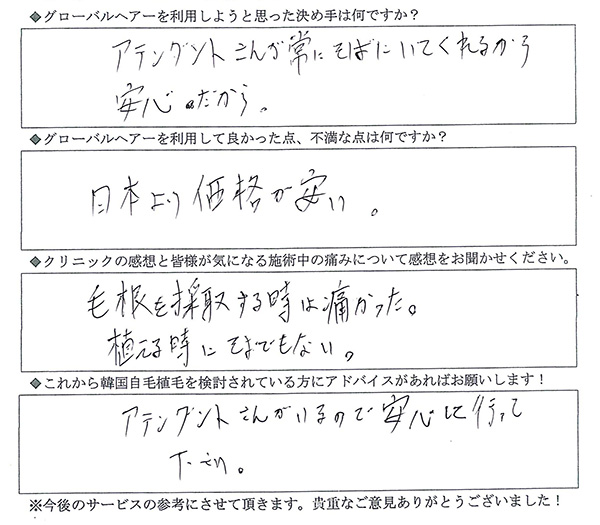 ◆グローバルヘアーを利用しようと思った決め手は何ですか?
アテンダントさんが常にそばにいてくれるから
安心だから。
◆グローバルヘアーを利用して良かった点、不満な点は何ですか?
日本より価格が安い。
◆クリニックの感想と皆様が気になる施術中の痛みについて感想をお聞かせください。
毛根を採取する時は痛かった。
植える時にそまでもない。
◆これから韓国自毛植毛を検討されている方にアドバイスがあればお願いします!
アテンダントさんがいるので安心して行って
下さい。
※今後のサービスの参考にさせて頂きます。貴重なご意見ありがとうございました!